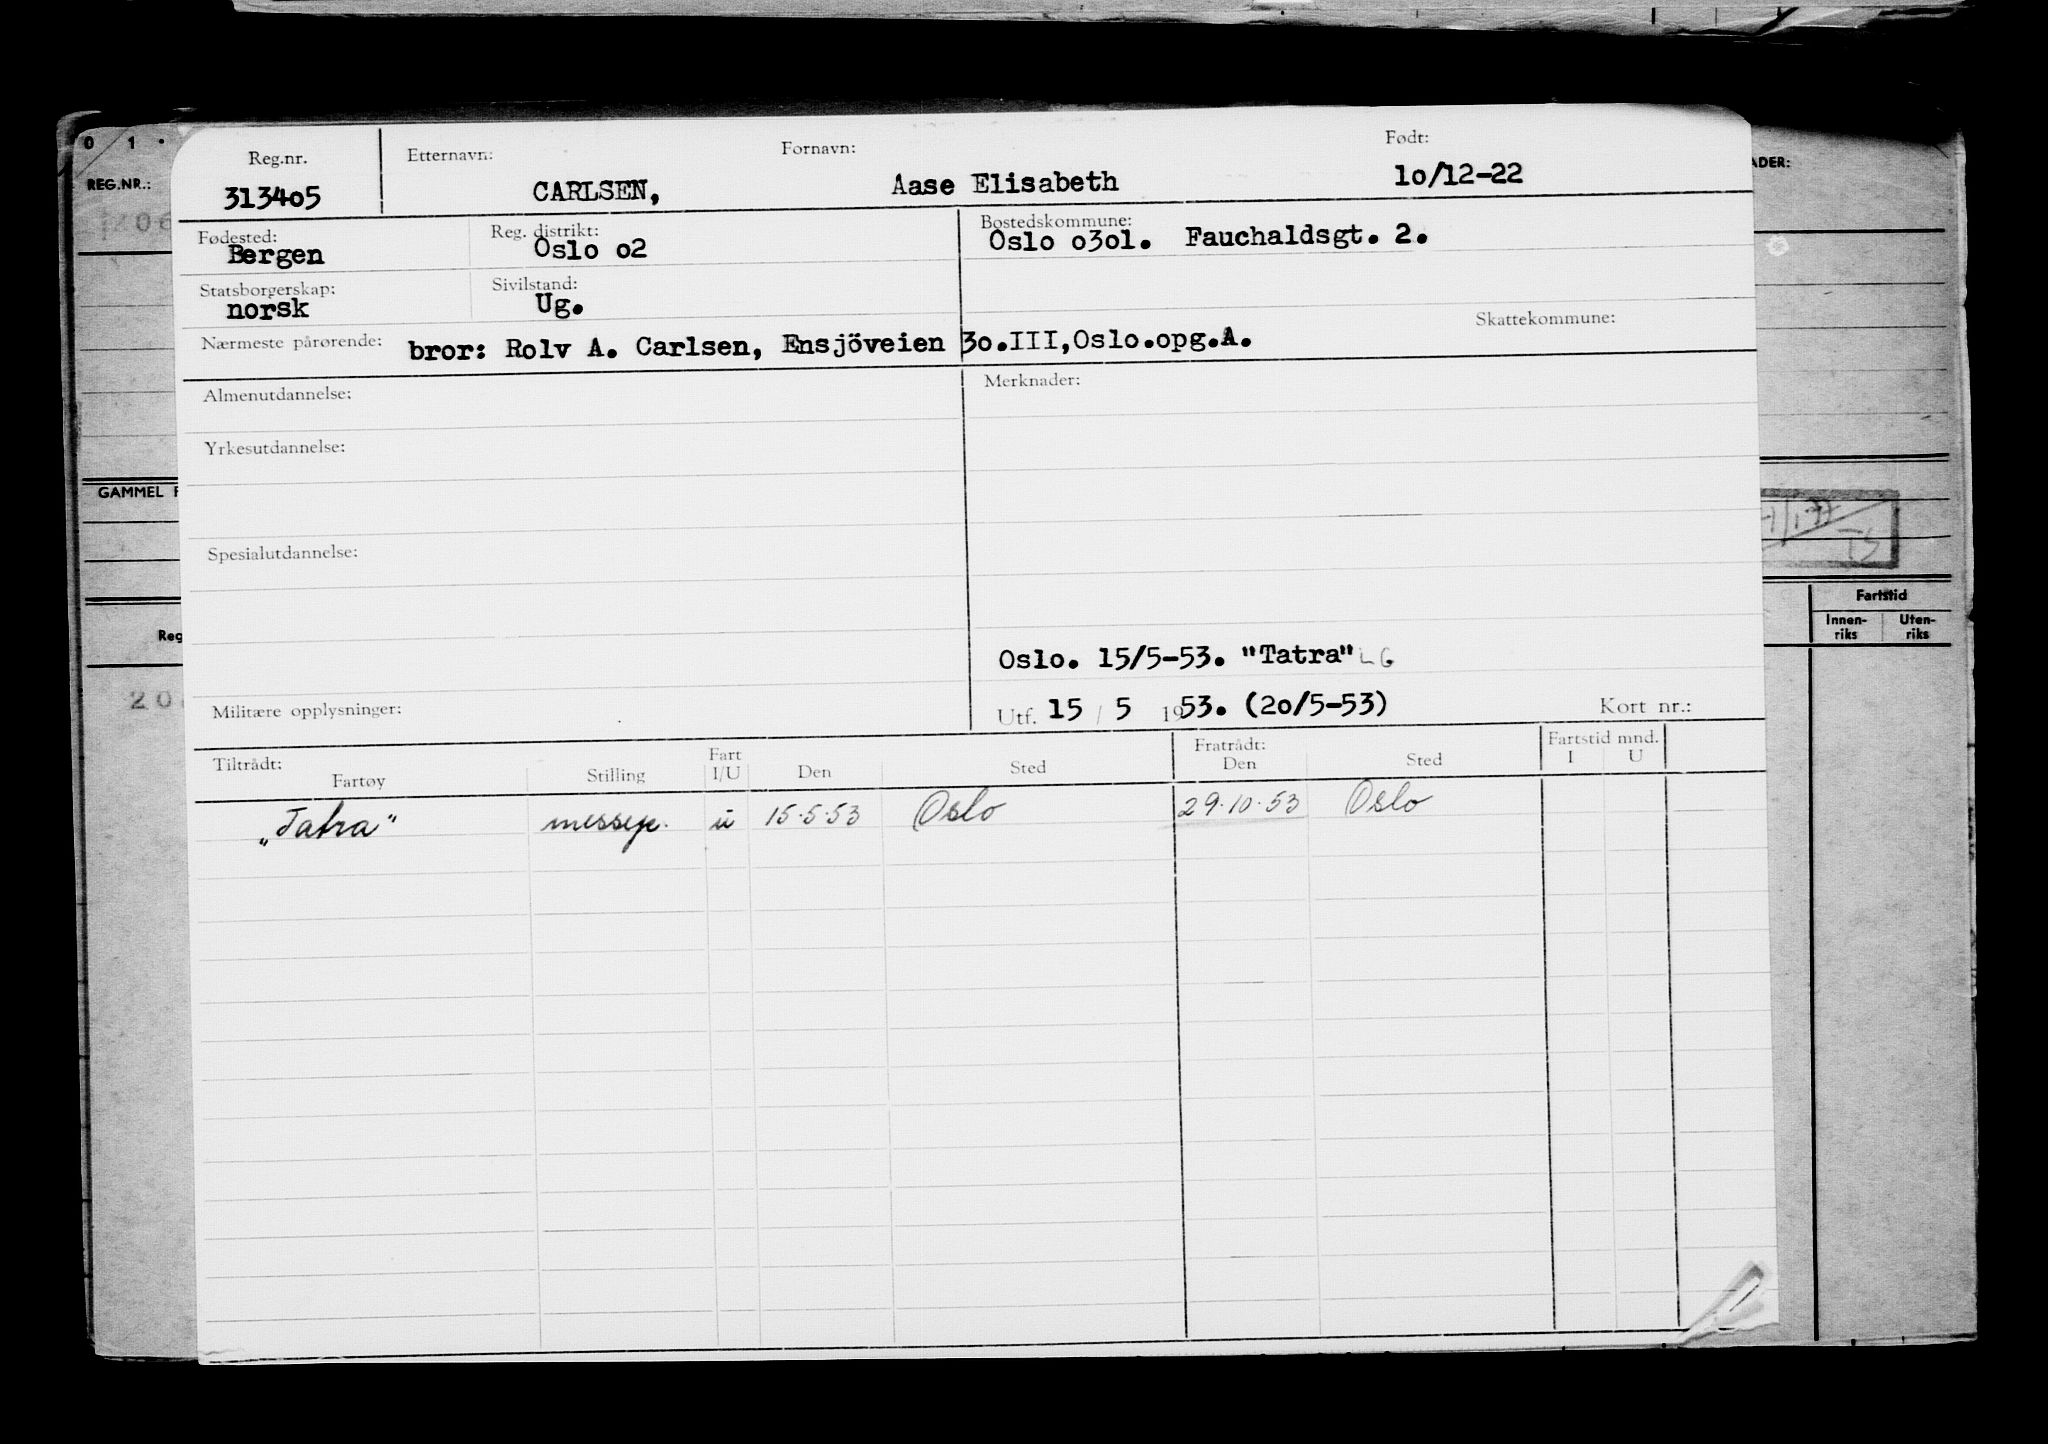 0 1 .
REG.NR.:
206
GAMMEL F
Reg
20
ADER:
1/77
TS
Fartstid
Innen-
riks
Uten-
riks
Reg.nr. Etternavn: Fornavn: Født:
313405 CARLSEN, Aase Elisabeth 10/12-22
Fødested: Reg. distrikt: Bostedskommune:
Bergen Oslo 02 Oslo 0301. Fauchaldsgt. 2.
Statsborgerskap: Sivilstand:
norsk Ug.
Skattekommune:
Nærmeste pårørende: bror: Rolv A. Carlsen, Ensjöveien 30.III,Oslo.opg.A.
Almenutdannelse: Merknader:
Yrkesutdannelse:
Spesialutdannelse:
Oslo. 15/5-53. "Tatra" LG
Militære opplysninger: Utf. 15 / 5 1953. (20/5-53) Kort nr.:
Tiltrådt: Fart Fratrådt: Fartstid mnd.
Fartøy Stilling I/U Den Sted Den Sted I U
„Tatra" messep. u 15.5.53 Oslo 29.10.53 Oslo